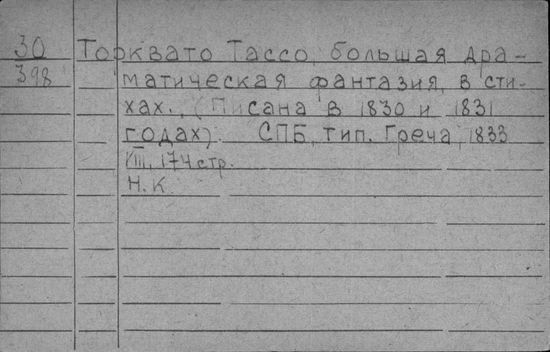 30 Торквато Тассо, большая дра-
398 матическая фантазия, в сти-
хах. (Писана в 1830 и 1831
годах). СПБ, тип. Греча, 1833
VIII, 174 стр.
Н.К.